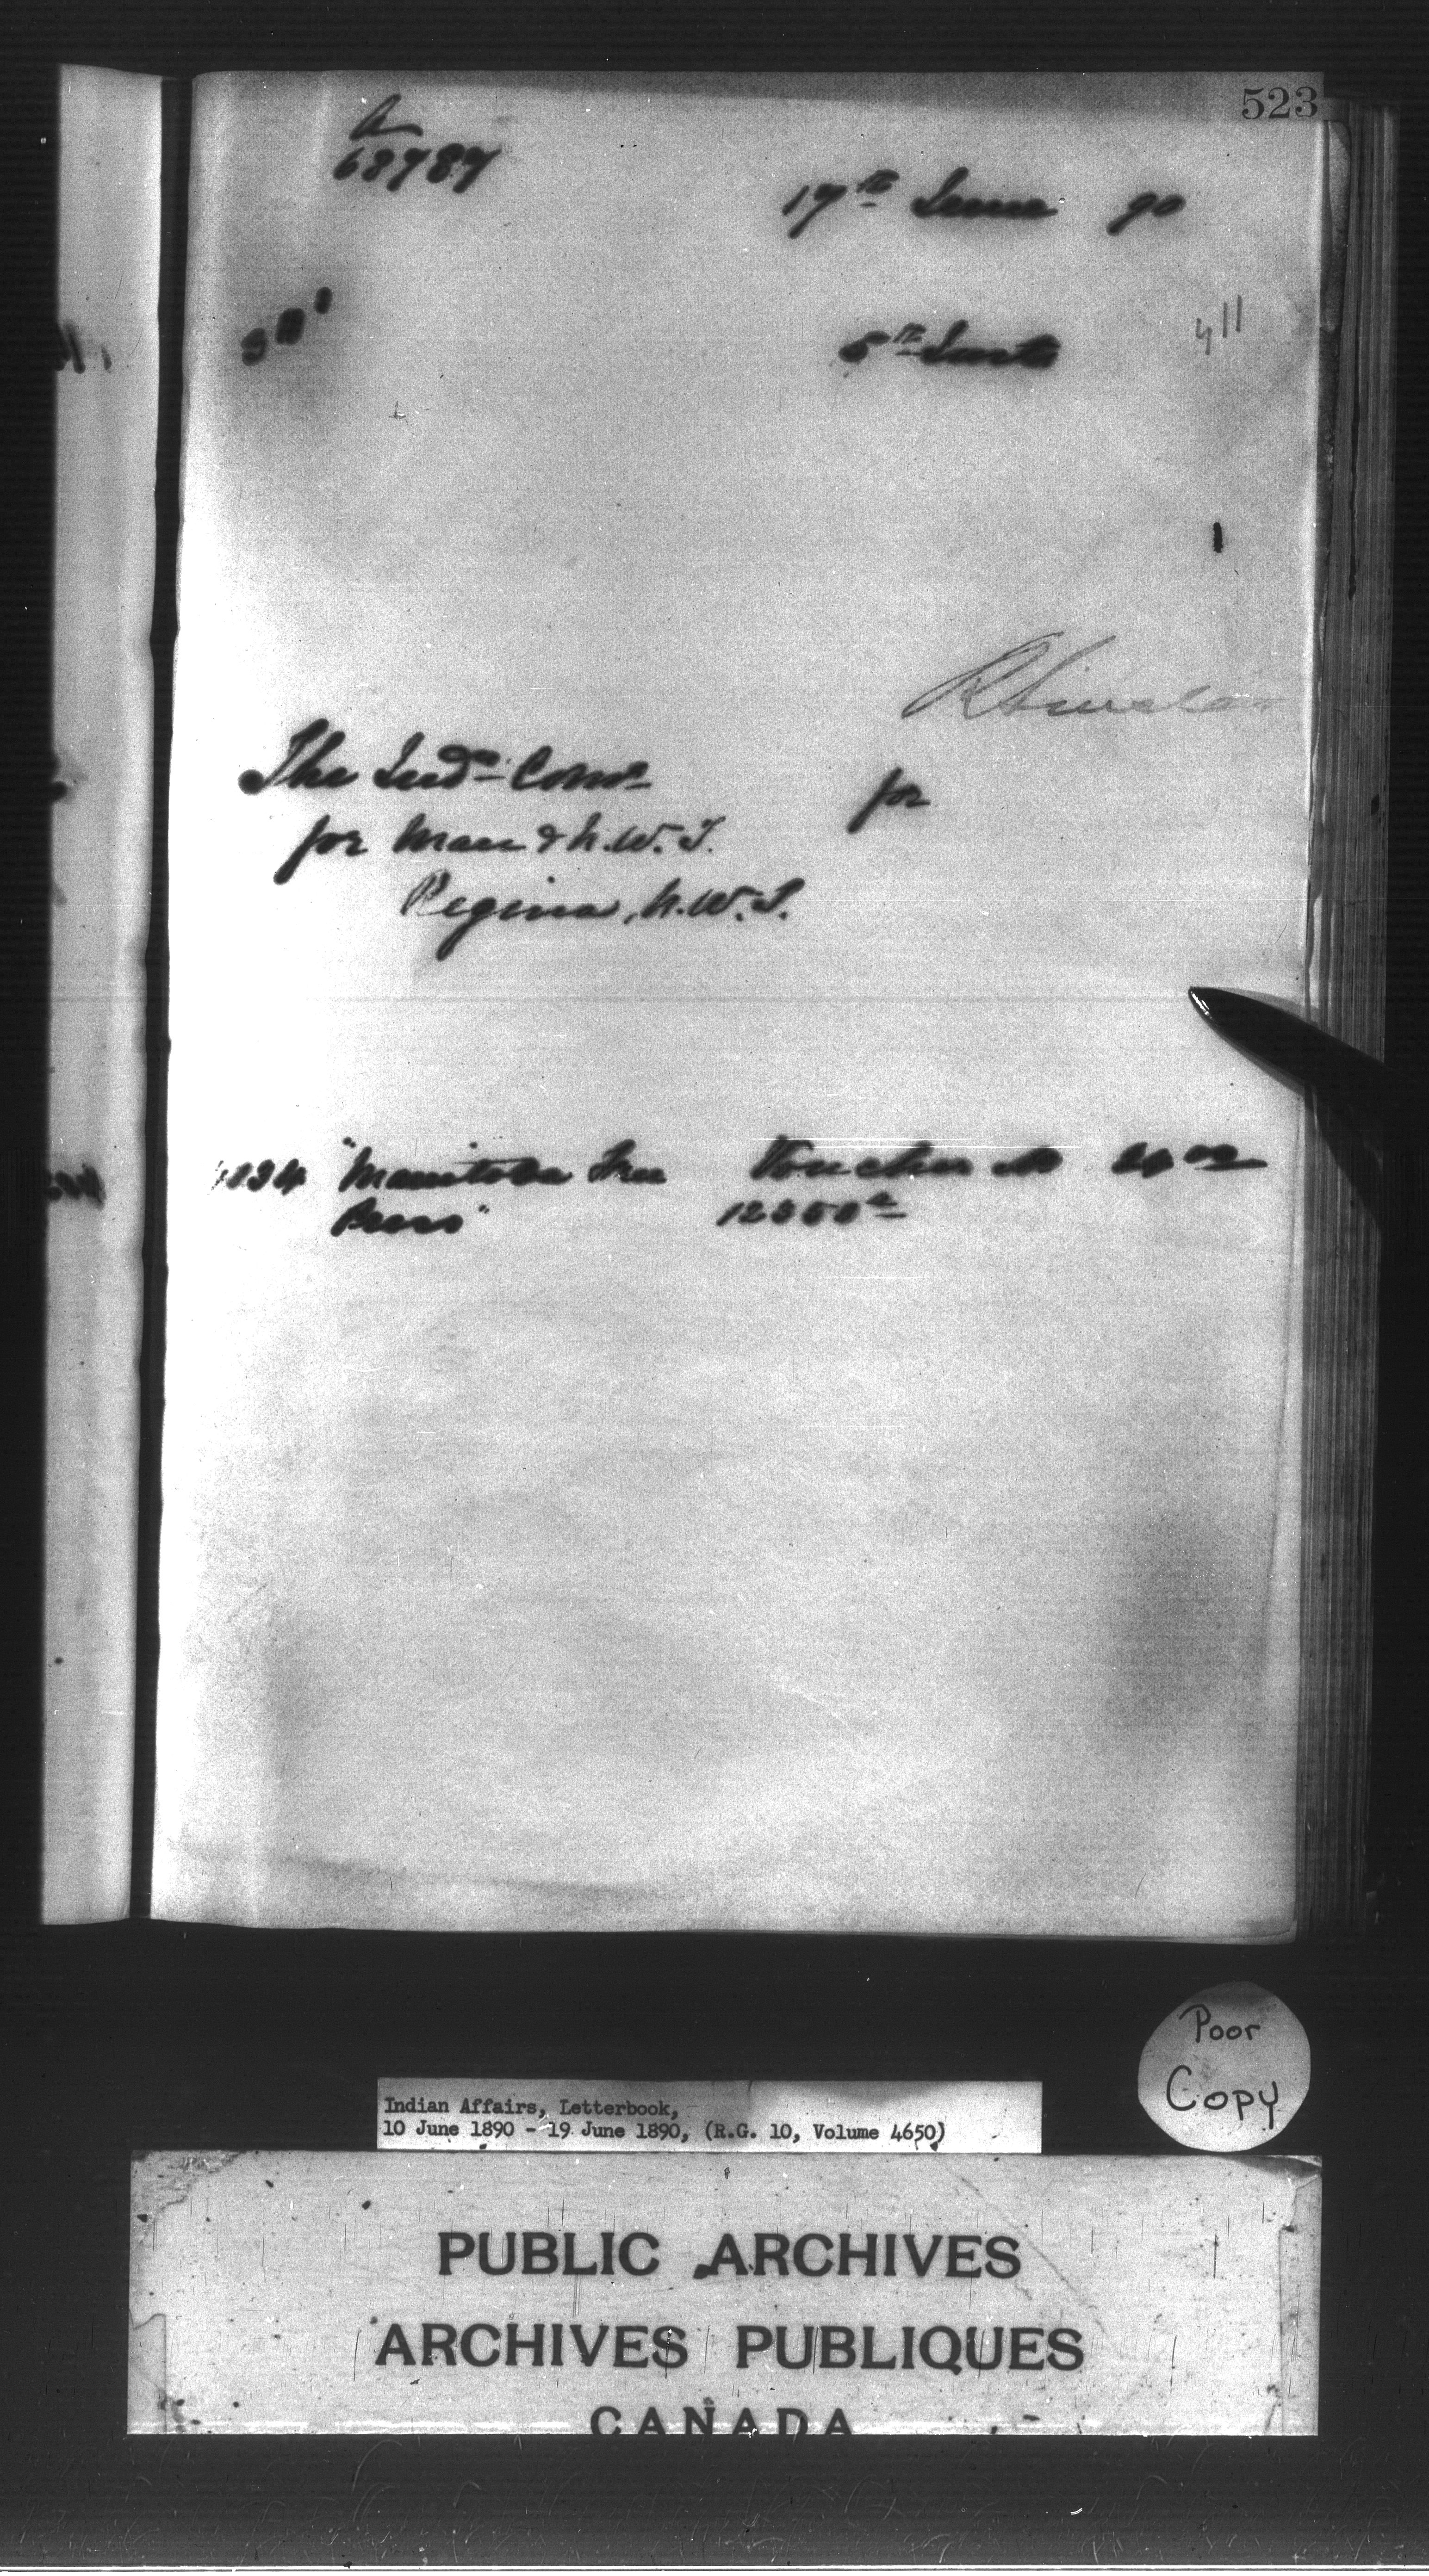 523
A
68787
17th June 90
5th Inst
411
R Sinclair
The Indn Comr
for
for Man & N.W.T.
Regina, N.W.T.
"Manitoba Free Voucher No 24 00
Press"
Poor
Copy
Indian Affairs, Letterbook,
10 June 1890 - 19 June 1890, (R.G. 10, Volume 4650)
PUBLIC ARCHIVES
ARCHIVES PUBLIQUES
CANADA